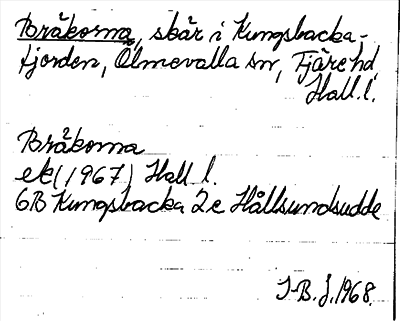 Bråkorna, skär i Kungsbacka-
fjorden, Ölmevalla sn, Fjäre hd,
Hall.l.
Bråkorna
ek (1967) Hall l.
6B Kungsbacka 2c Hållsundsudde
I-B. J. 1968.